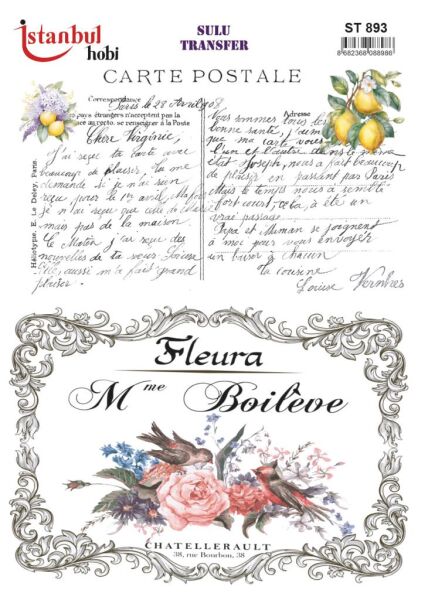 istanbul
hobi
SULU
TRANSFER
ST 893
8682368088986
CARTE POSTALE
Correspondance
Paris le 28 Avril 08
Adresse
pays étrangers n'acceptent pas la
se renseigner à la Poste
Chère Virginie,
J'ai reçu ta carte avec
beaucoup de plaisir, tu me
demande si je n'ai rien
reçu pour le 1er avril, Ma foi
je n'ai reçu que celle de
mais pas de la maison.
Le Matin j'ai reçu des
nouvelles de ta soeur Louise
aussi m'a fait grand
plaisir.
Vous sommes tous les
bonne santé, j'aime
que ma carte vous
l'un et l'autre dans le même
état Joseph, nous a fait beaucoup
de plaisir en passant par Paris
Mais le temps nous a semblé
fort court, cela, a été un
vrai passage
Papa et Maman se joignent
à moi pour vous envoyer
un baiser à chacun
Ta cousine
Louise Vernhres
Héliotypie, E. Le Deley, Paris.
Fleura
Mme Boilève
CHATELLERAULT
38, rue Bourbon, 38